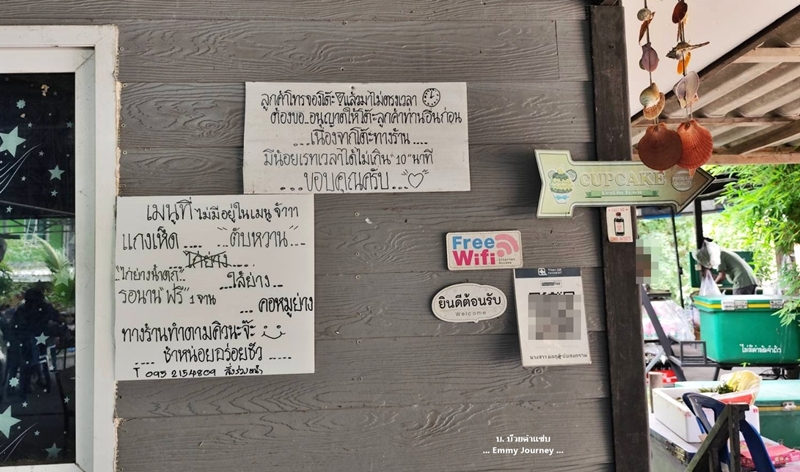 ลูกค้าโทรจองโต๊ะแล้วมาไม่ตรงเวลา
ต้องขอ..อนุญาติให้โต๊ะลูกค้าท่านอื่นก่อน
....เนื่องจากโต๊ะทางร้าน....
มีน้อยเรทเวลาได้ไม่เกิน "10" นาที
....ขอบคุณครับ...
เมนูที่ ไม่มีอยู่ในเมนู จ้าาา
แกงเห็ด.... ...."ตับหวาน"...
...ไส้ย่าง...
รอนาน "ฟรี" 1 จาน
...คอหมูย่าง
ทางร้านทำตามคิวนะจ๊ะ
....ช้าหน่อยอร่อยชัว....
T 095 2154809 สั่งล่วงหน้า
CUPCAKE
Free
Wifi
ยินดีต้อนรับ
Welcome
บ. บ๊วยตำแซ่บ
... Emmy Journey ...